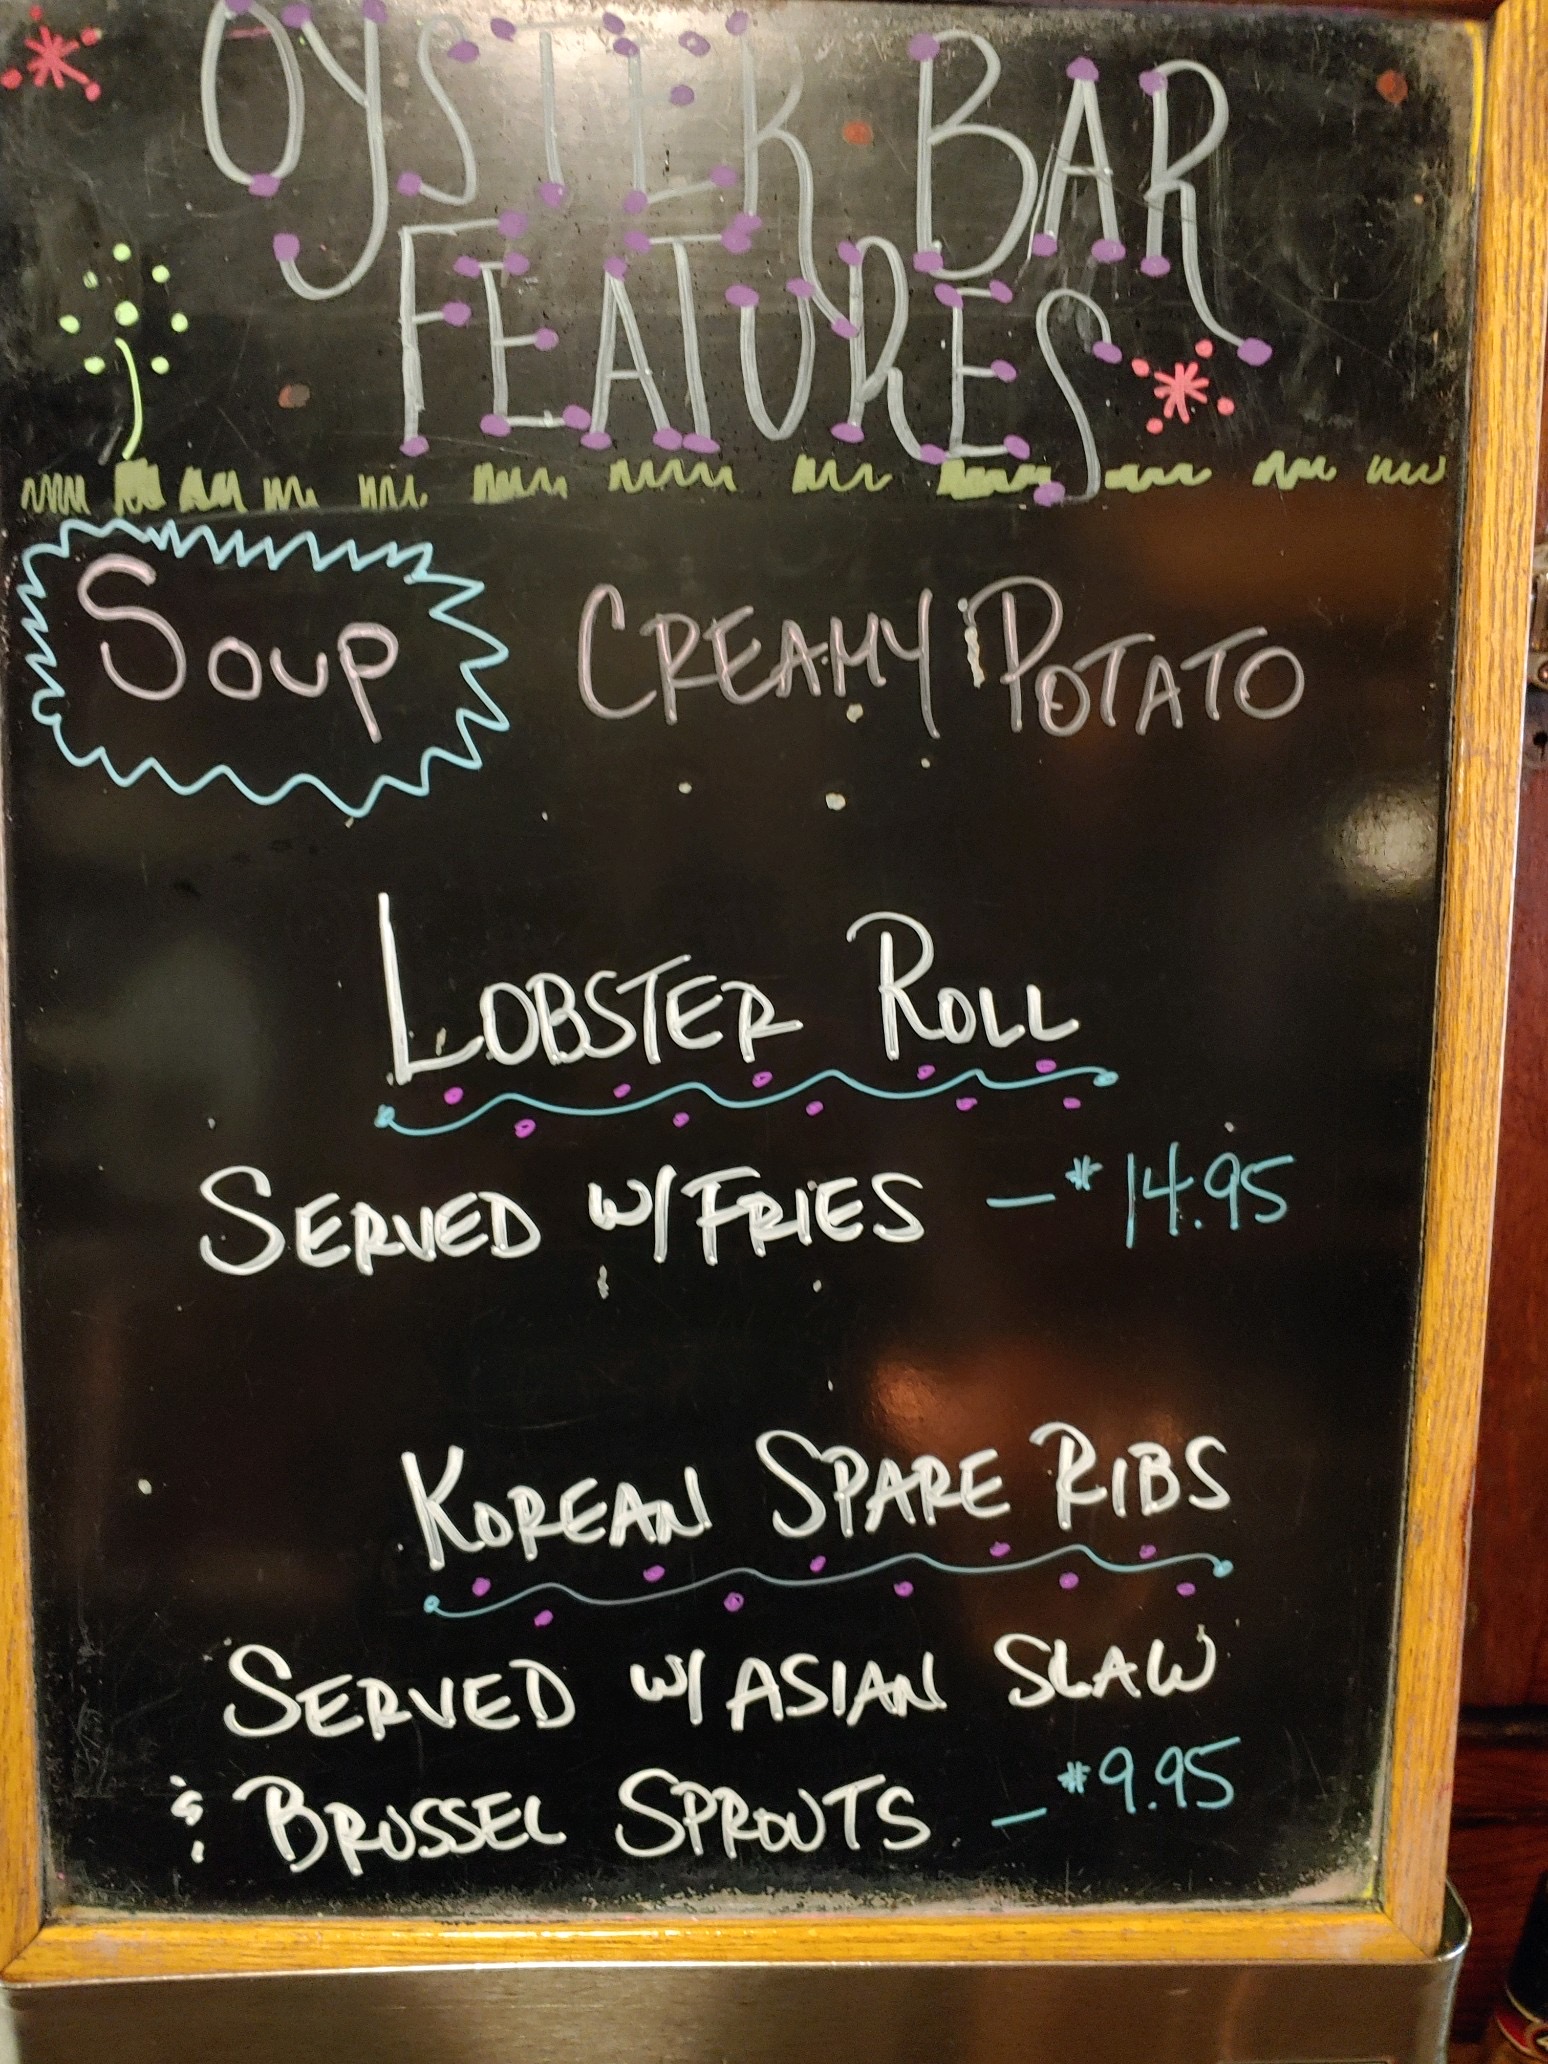 OYSTER BAR
FEATURES
SOUP CREAMY POTATO
LOBSTER ROLL
SERVED W/ FRIES - $14.95
KOREAN SPARE RIBS
SERVED W/ ASIAN SLAW
& BRUSSEL SPROUTS - $9.95